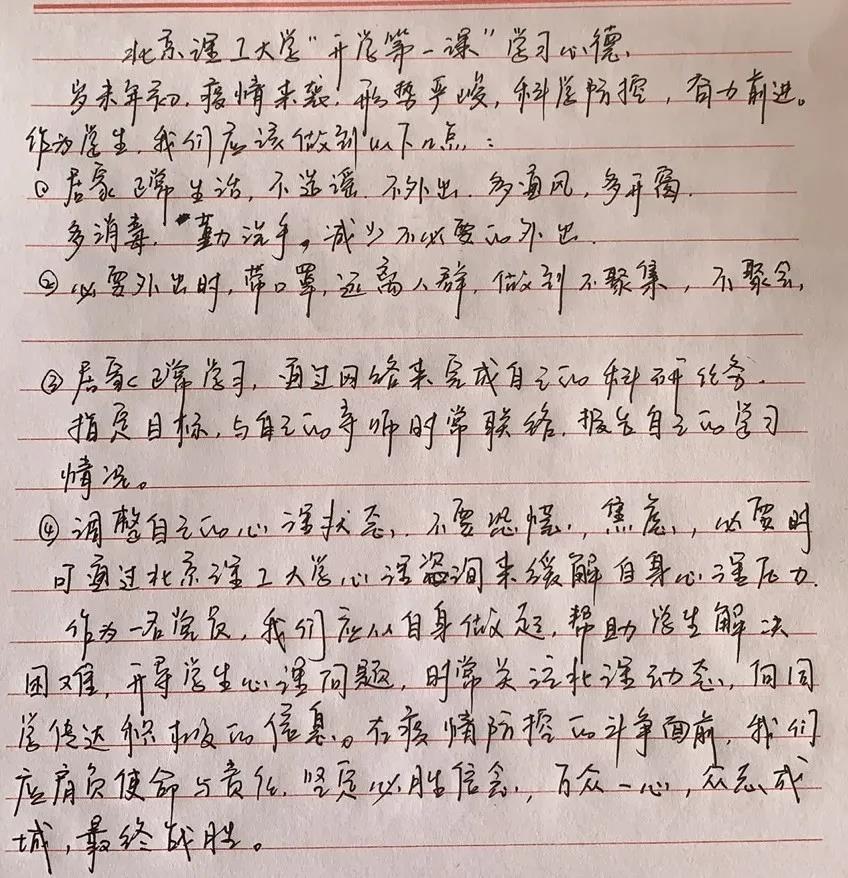 北京理工大学"开学第一课"学习心德.
岁末年初,疫情来袭,形势严峻,科学防控,奋力前进。
作为学生,我们应该做到以下几点:
①居家正常生活,不造谣 不外出.多通风,多开窗.
多消毒.勤洗手。减少不必要的外出.
②必要外出时,带口罩,远离人群,做到不聚集,不聚会,
③居家正常学习,通过网络来完成自己的科研任务.
指定目标,与自己的导师时常联络.报告自己的学习
情况。
④调整自己的心理状态,不要恐慌,焦虑,必要时
可通过北京理工大学心理咨询来缓解自身心理压力.
作为一名党员,我们应从自身做起,帮助学生解决
困难,开导学生心理问题,时常关注北理动态,向同
学传达积极的信息。在疫情防控的斗争面前,我们
应肩负使命与责任.坚定必胜信念,万众一心,众志成
城,最终战胜。